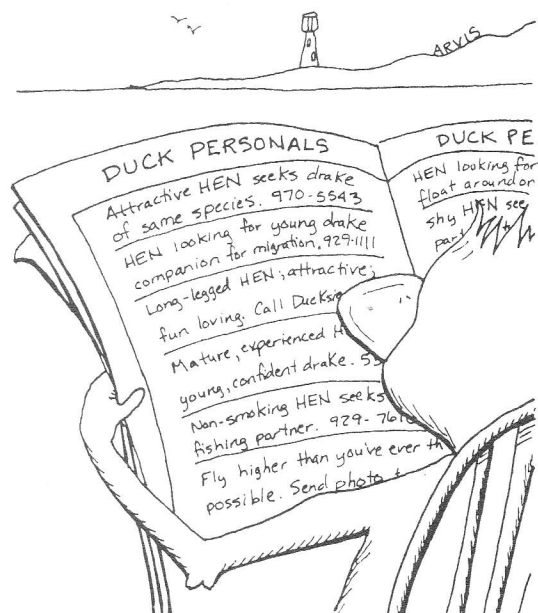 ARVIS
DUCK PERSONALS
Attractive HEN seeks drake
of same species. 970-5543
HEN looking for young drake
companion for migration. 929-1111
Long-legged HEN; attractive;
fun loving. Call
Mature, experienced
young, confident drake.
Non-smoking HEN seeks
fishing partner. 929-
Fly higher than you've ever
possible. Send photo
DUCK
HEN looking for
float around or
shy HEN